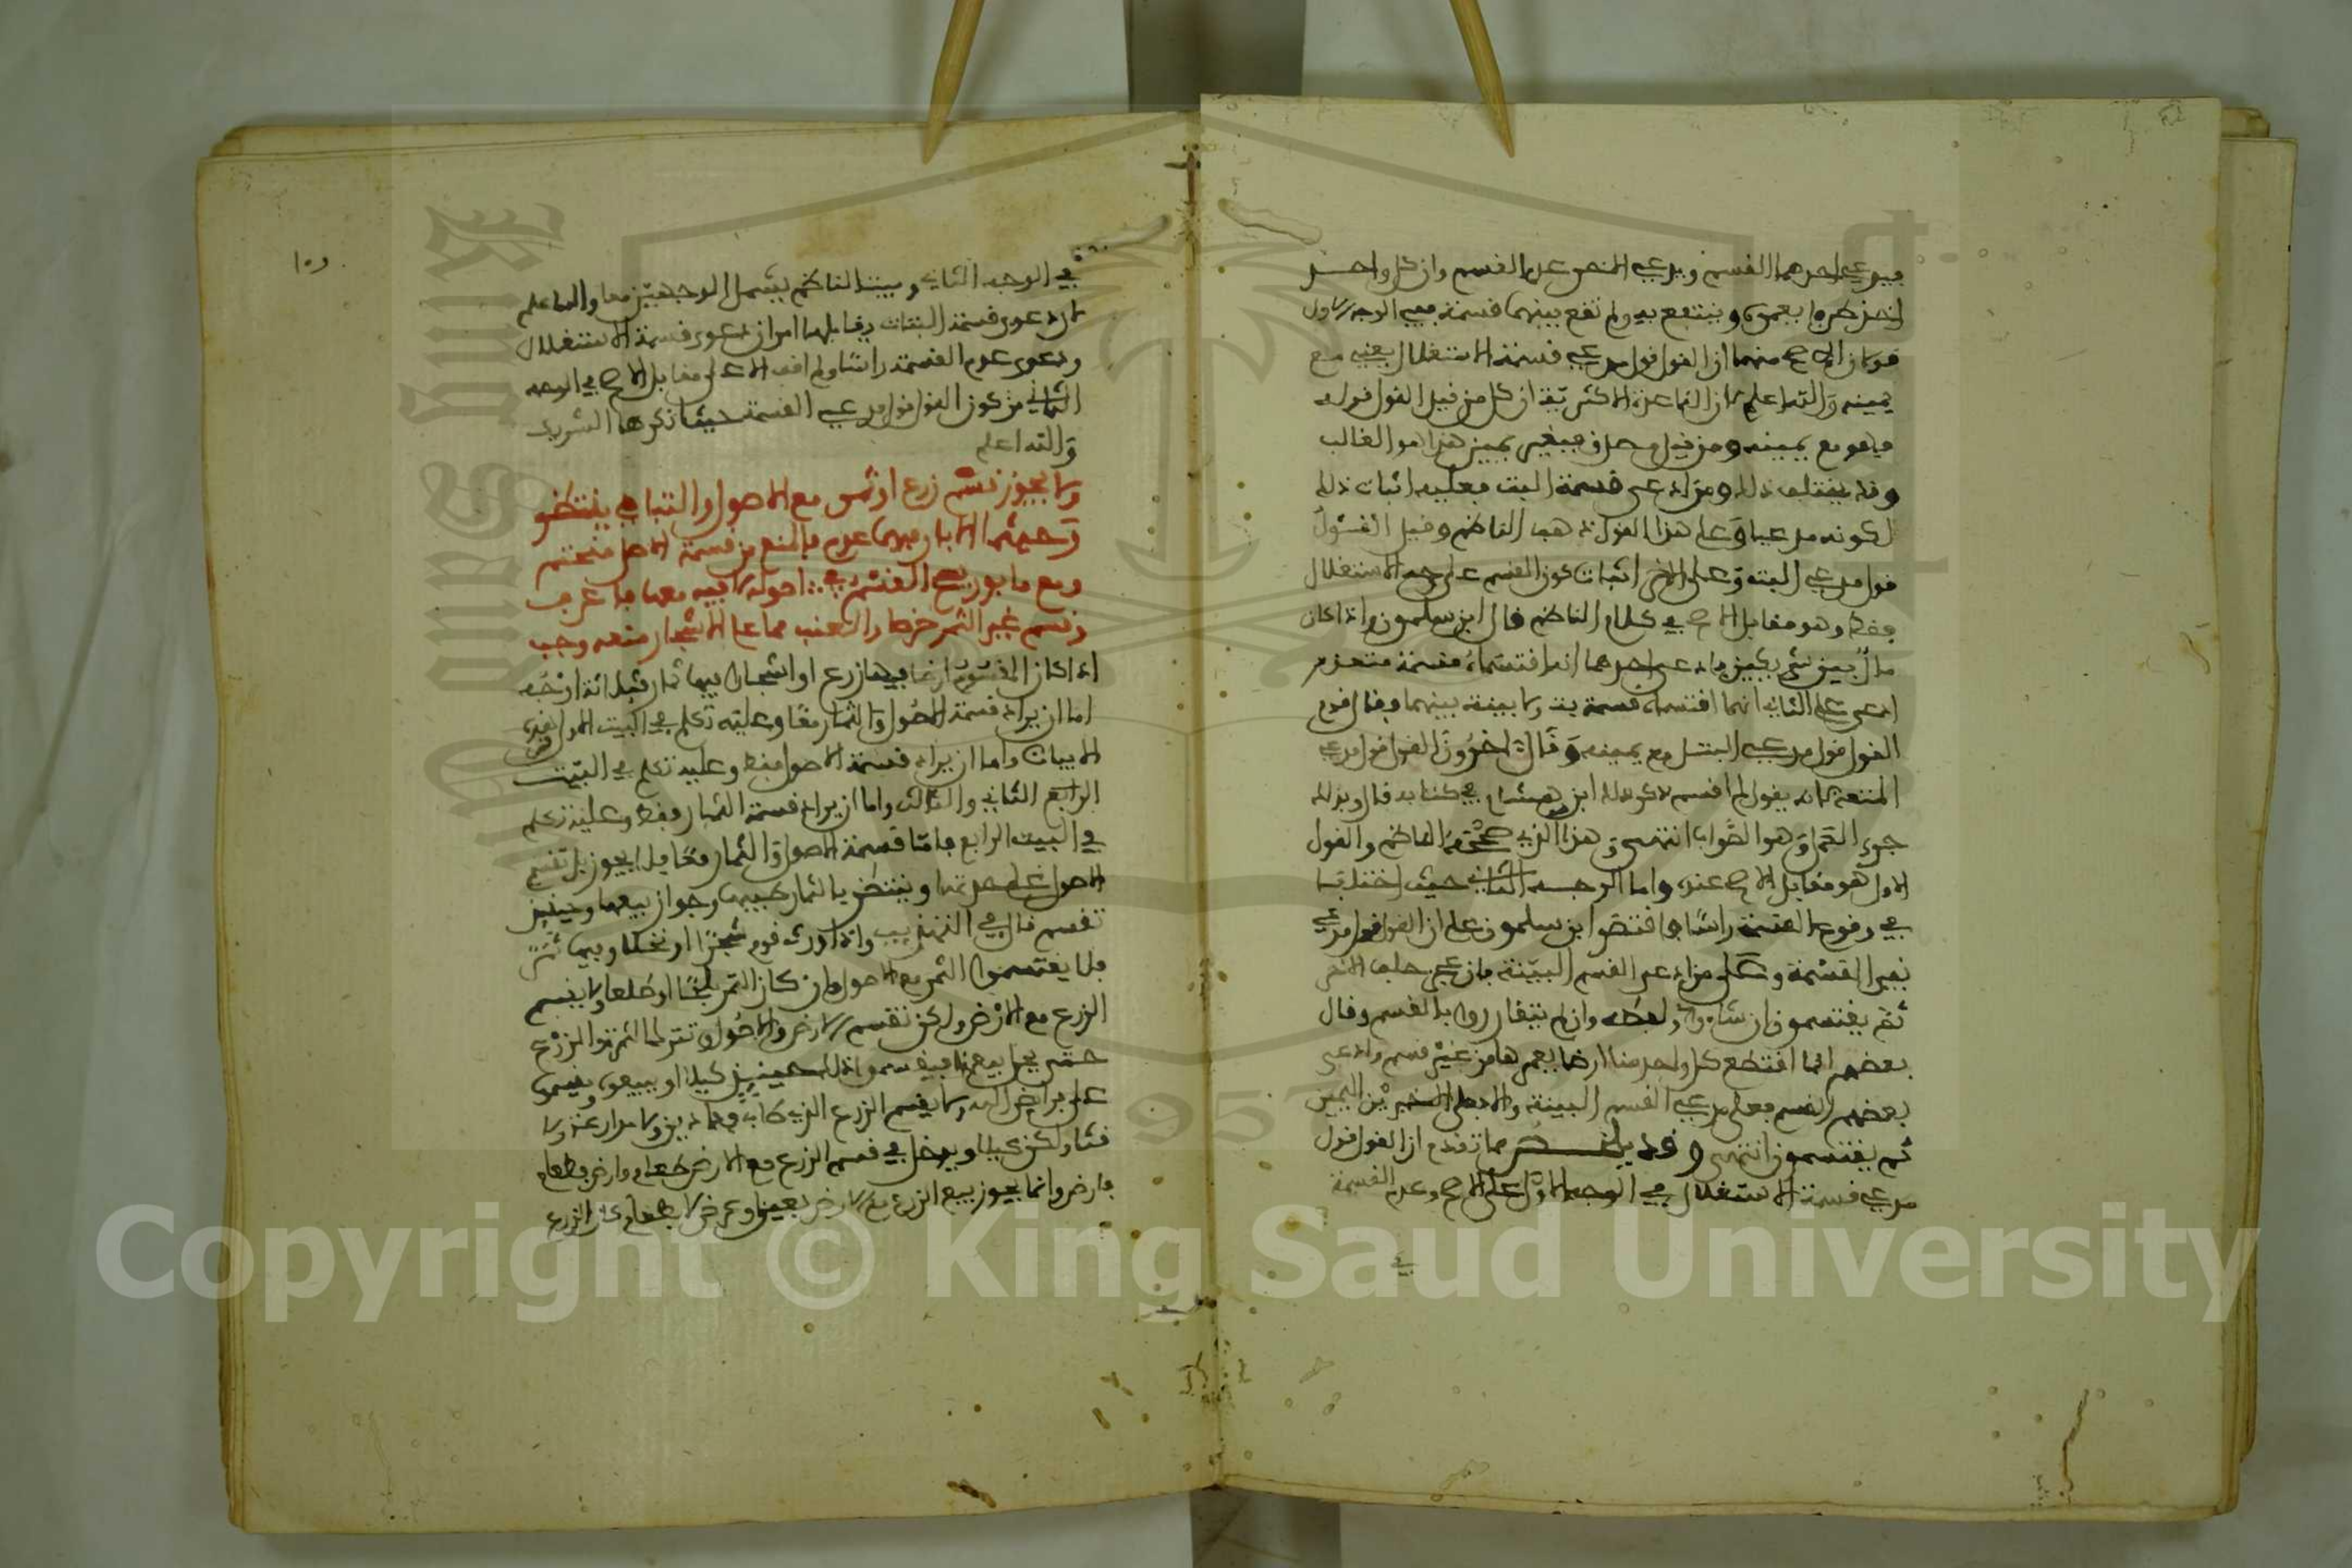 فيدعي احدهما القسم ويدعي الاخر عدم القسم وان كل واحد
اخذ طرفا يعمره وينتفع به ولم تقع بينهما قسمة ففي الوجه الاول
قولان الاصح منهما ان القول قول مدعي قسمة الاستغلال يعني مع
يمينه والله اعلم لان القاعدة الاكثرية ان كل من قيل القول قوله
فهو مع يمينه ومن قيل مصدق فبغير يمين هذا هو الغالب
وقد يختلف ذلك ومن ادعى قسمة البت فعليه اثبات ذلك
لكونه مدعيا وعلى هذا القول ذهب الناظم وقيل القول
قول مدعي البتة وعلى الاخر اثبات كون القسم على جهة الاستغلال
فقط وهو مقابل الاصح في كلام الناظم قال ابن سلمون واذا كان
مال بين شريكين فادعى احدهما انه اقتسماه قسمة متعة
ادعى على الثاني انهما اقتسماه قسمة بت ولا بينة بينهما فقال قوم
القول قول مدعي البتل مع يمينه وقال اخرون القول قول مدعي
المتعة كانه يقول لم اقسم ذكر ذلك ابن هشام في كتابه قال وبذلك
جرى العمل وهو الصواب انتهى وهذا الذي صححه الناظم والقول
الاول هو مقابل الاصح عنده واما الوجه الثاني حيث اختلفا
في وقوع القسمة راسا فاقتصر ابن سلمون على ان القول قول مدعي
نفي القسمة وعلى من ادعى القسم البينة فان عجز حلف الاخر
ثم يقتسمون ان شاءوا ولفظه وان لم يتقاررا بالقسم وقال
بعضهم انما اقتطع كل واحد منا ارضا يعمرها من غير قسم وادعى
بعضهم القسم فعلى مدعي القسم البينة والا فعلى الاخرين اليمين
ثم يقتسمون انتهى وقد يلخص مما تقدم ان القول قول
مدعي قسمة الاستغلال في الوجه الاول على الاصح وعدم القسمة
في
في الوجه الثاني وبيت الناظم يشمل الوجهين معا والله اعلم
لان دعوى قسمة البتات يقابلها امران دعوى قسمة الاستغلال
ودعوى عدم القسمة راسا ولم اقف الا على مقابل الاصح في الوجه
الثاني من كون القول قول مدعي القسمة حيثما ذكرها الشريك
والله اعلم
ولا يجوز قسم زرع او ثمر مع الاصول والتناهي ينتظر
وحيثما الابار فيهما عدم فالمنع من قسمة الاصل منحتم
ومع مابور يصح القسم في اصوله لا فيه معها فاعرف
وقسم غير التمر خرصا والعنب مما على الاشجار منعه وجب
اذا كان المقسوم ارضا فيها زرع او اشجارا فيها ثمار فثلاثة اوجه
اما ان يراد قسمة الاصول والثمار معا وعليه تكلم في البيت الاول من هذه
الابيات واما ان يراد قسمة الاصول فقط وعليه تكلم في البيت
الرابع الثاني والثالث واما ان يراد قسمة الثمار فقط وعليه تكلم
في البيت الرابع فاما قسمة الاصول والثمار معا فلا يجوز بل تقسم
الاصول على حدتها وينتظر بالثمار طيبها وجواز بيعها وحينئذ
تقسم قال في التهذيب واذا ورث قوم شجرا او نخلا وفيها ثمر
فلا يقتسموا الثمر مع الاصول وان كان الثمر بلحا او طلعا ولا يقسم
الزرع مع الارض ولكن تقسم الارض والاصول وتترك الثمرة والزرع
حتى يحل بيعهما فيقسموا ذلك حينئذ كيلا او يبيعوه ويقسموا
على فرايض الله ولا يقسم الزرع الذي طاب فدادين ولا مزارعة ولا
قتا ولكن كيلا ويدخل في قسم الزرع مع الارض طعام وارض بطعام
وارض وانما يجوز بيع الزرع مع الارض بعين او عرض لا بطعام كان الزرع